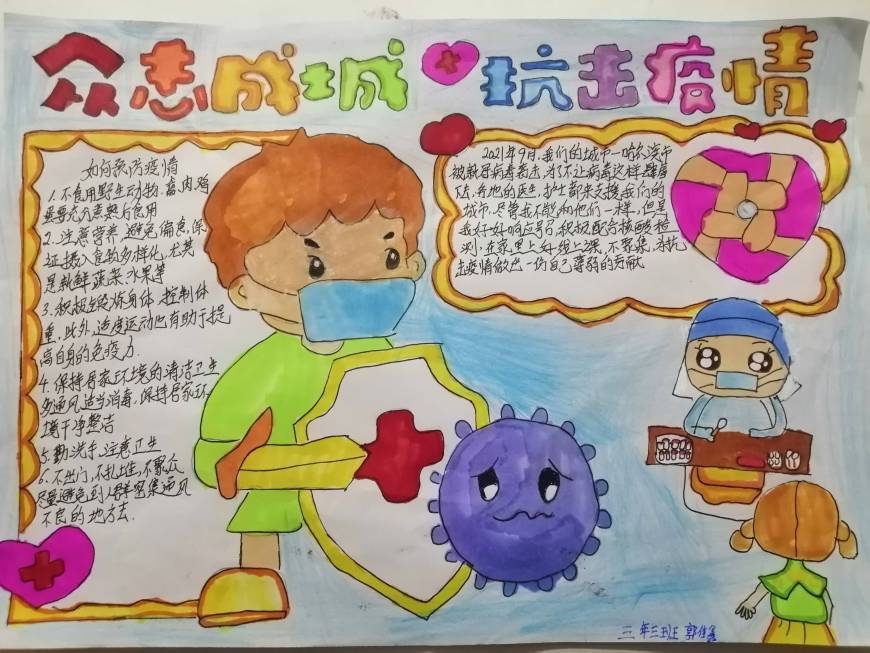 众志成城 抗击疫情
如何预防疫情
1.不食用野生动物,禽肉鸡
蛋要充分煮熟后食用
2.注意营养,避免偏食,保
证摄入食物多样化,尤其
是新鲜蔬菜、水果等
3.积极锻炼身体,控制体
重,此外,适度运动也有助于提
高自身的免疫力.
4.保持居家环境的清洁卫生
多通风适当消毒,保持居家环
境干净整洁
5.勤洗手,注意卫生
6.不出门,不扎堆,不聚众
尽量避免到人群密集通风
不良的地方去.
2021年9月,我们的城市一哈尔滨市
被新冠病毒袭击,为了不让病毒这样肆虐
下去,各地的医生,护士都来支援我们的
城市,尽管我不能和他们一样,但是
我好好响应号召,积极配合核酸检
测,在家里上好线上课,不聚集,为抗
击疫情做出一份自己薄弱的贡献
三年三班 郭佳